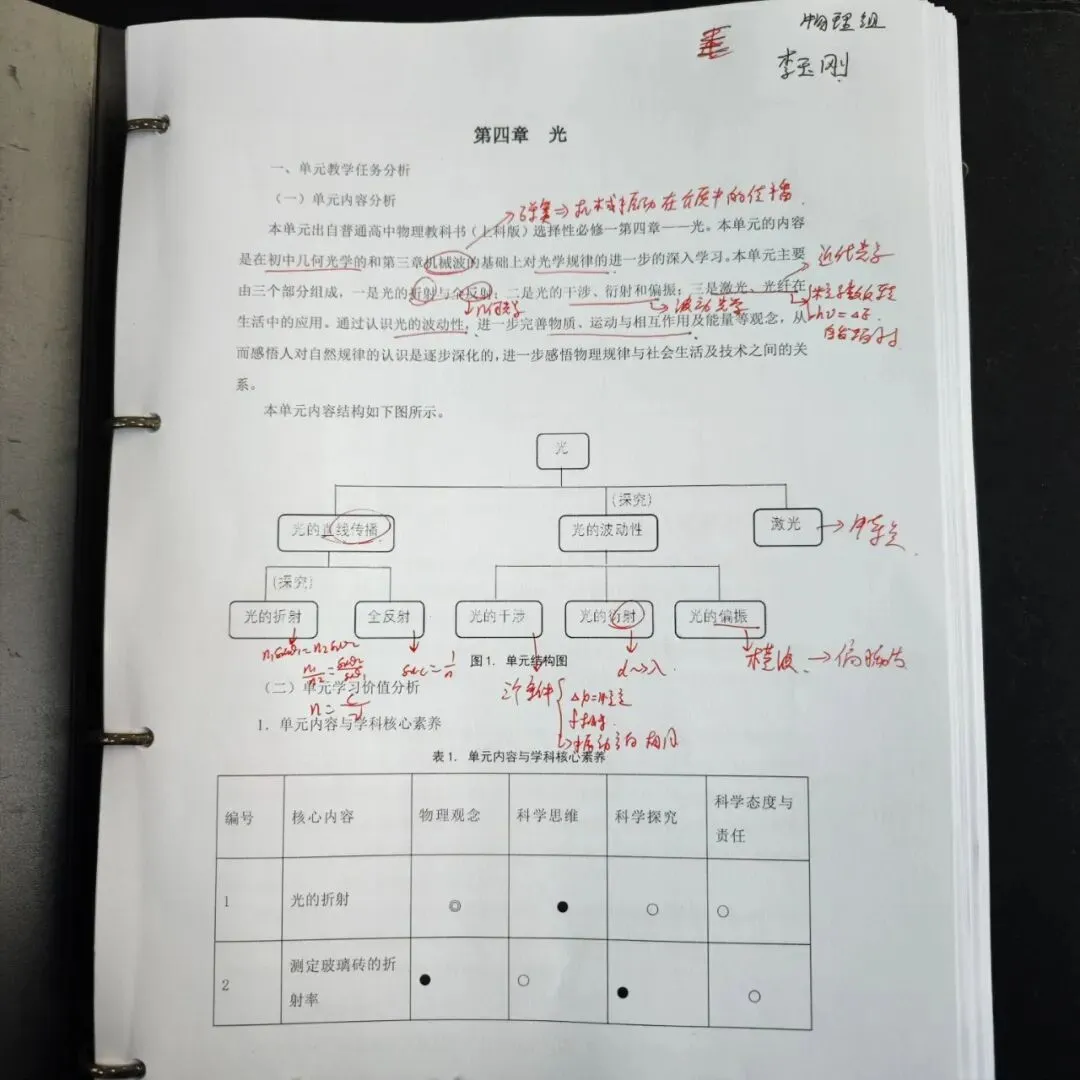 物理组
李玉刚
第四章 光
一、单元教学任务分析
（一）单元内容分析
弹簧⇒机械振动在介质中的传播.
本单元出自普通高中物理教科书（上科版）选择性必修一第四章——光。本单元的内容
是在初中几何光学的和第三章机械波的基础上对光学规律的进一步的深入学习。本单元主要
近代光学
由三个部分组成，一是光的折射与全反射；二是光的干涉、衍射和偏振；三是激光、光纤在
几何光学
波动光学
粒子数反转
hν=ΔE
自发辐射
生活中的应用。通过认识光的波动性，进一步完善物质、运动与相互作用及能量等观念，从
而感悟人对自然规律的认识是逐步深化的，进一步感悟物理规律与社会生活及技术之间的关
系。
本单元内容结构如下图所示。
光
（探究）
光的直线传播
光的波动性
激光
特点
（探究）
光的折射
全反射
光的干涉
光的衍射
光的偏振
图1. 单元结构图
d~λ
横波
→偏振片
（二）单元学习价值分析
三个条件
振动方向相同
1. 单元内容与学科核心素养
表1. 单元内容与学科核心素养
编号 核心内容 物理观念 科学思维 科学探究 科学态度与
责任
1 光的折射 ◎ ● ○ ○
2 测定玻璃砖的折
射率 ● ○ ● ○